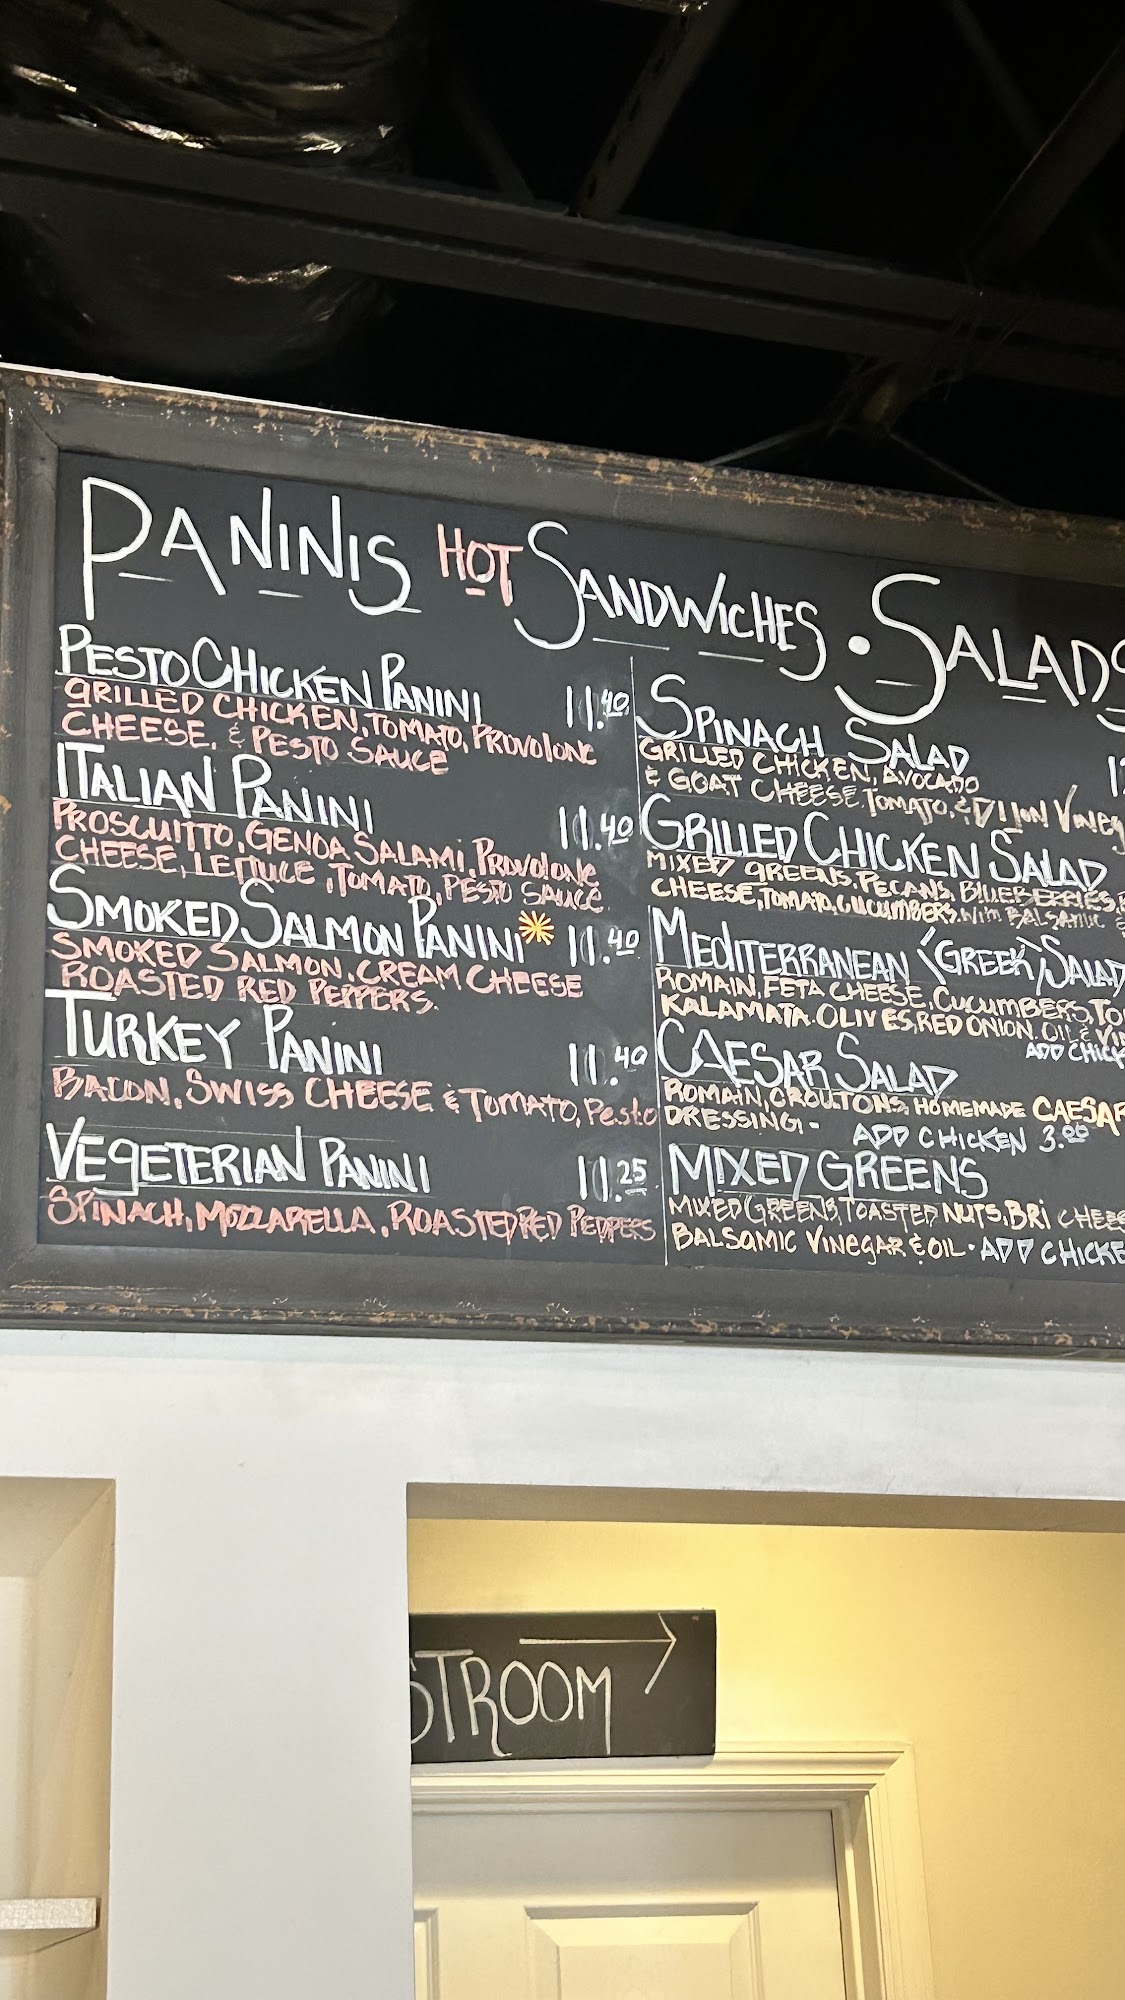 PANINIS HOT SANDWICHES • SALADS
PESTO CHICKEN PANINI 11.40
GRILLED CHICKEN, TOMATO, PROVOLONE
CHEESE, & PESTO SAUCE
ITALIAN PANINI 11.40
PROSCUITTO, GENOA SALAMI, PROVOLONE
CHEESE, LETTUCE, TOMATO, PESTO SAUCE
SMOKED SALMON PANINI 11.40
SMOKED SALMON, CREAM CHEESE
ROASTED RED PEPPERS.
TURKEY PANINI 11.40
BACON, SWISS CHEESE & TOMATO, Pesto
VEGETERIAN PANINI 11.25
SPINACH, MOZZARELLA, ROASTED RED PEPPERS
SPINACH SALAD
GRILLED CHICKEN, AVOCADO
& GOAT CHEESE, TOMATO, & DIJON
GRILLED CHICKEN SALAD
MIXED GREENS, PECANS, BLUEBERRIES,
CHEESE, TOMATO, CUCUMBERS, BALSAMIC
MEDITERRANEAN (GREEK) SALAD
ROMAIN, FETA CHEESE, CUCUMBERS,
KALAMATA OLIVES, RED ONION, OIL &
ADD
CAESAR SALAD
ROMAIN, CROUTONS, HOMEMADE CAESAR
DRESSING - ADD CHICKEN 3.00
MIXED GREENS
MIXED GREENS, TOASTED NUTS, BRI
BALSAMIC VINEGAR & OIL • ADD
STROOM